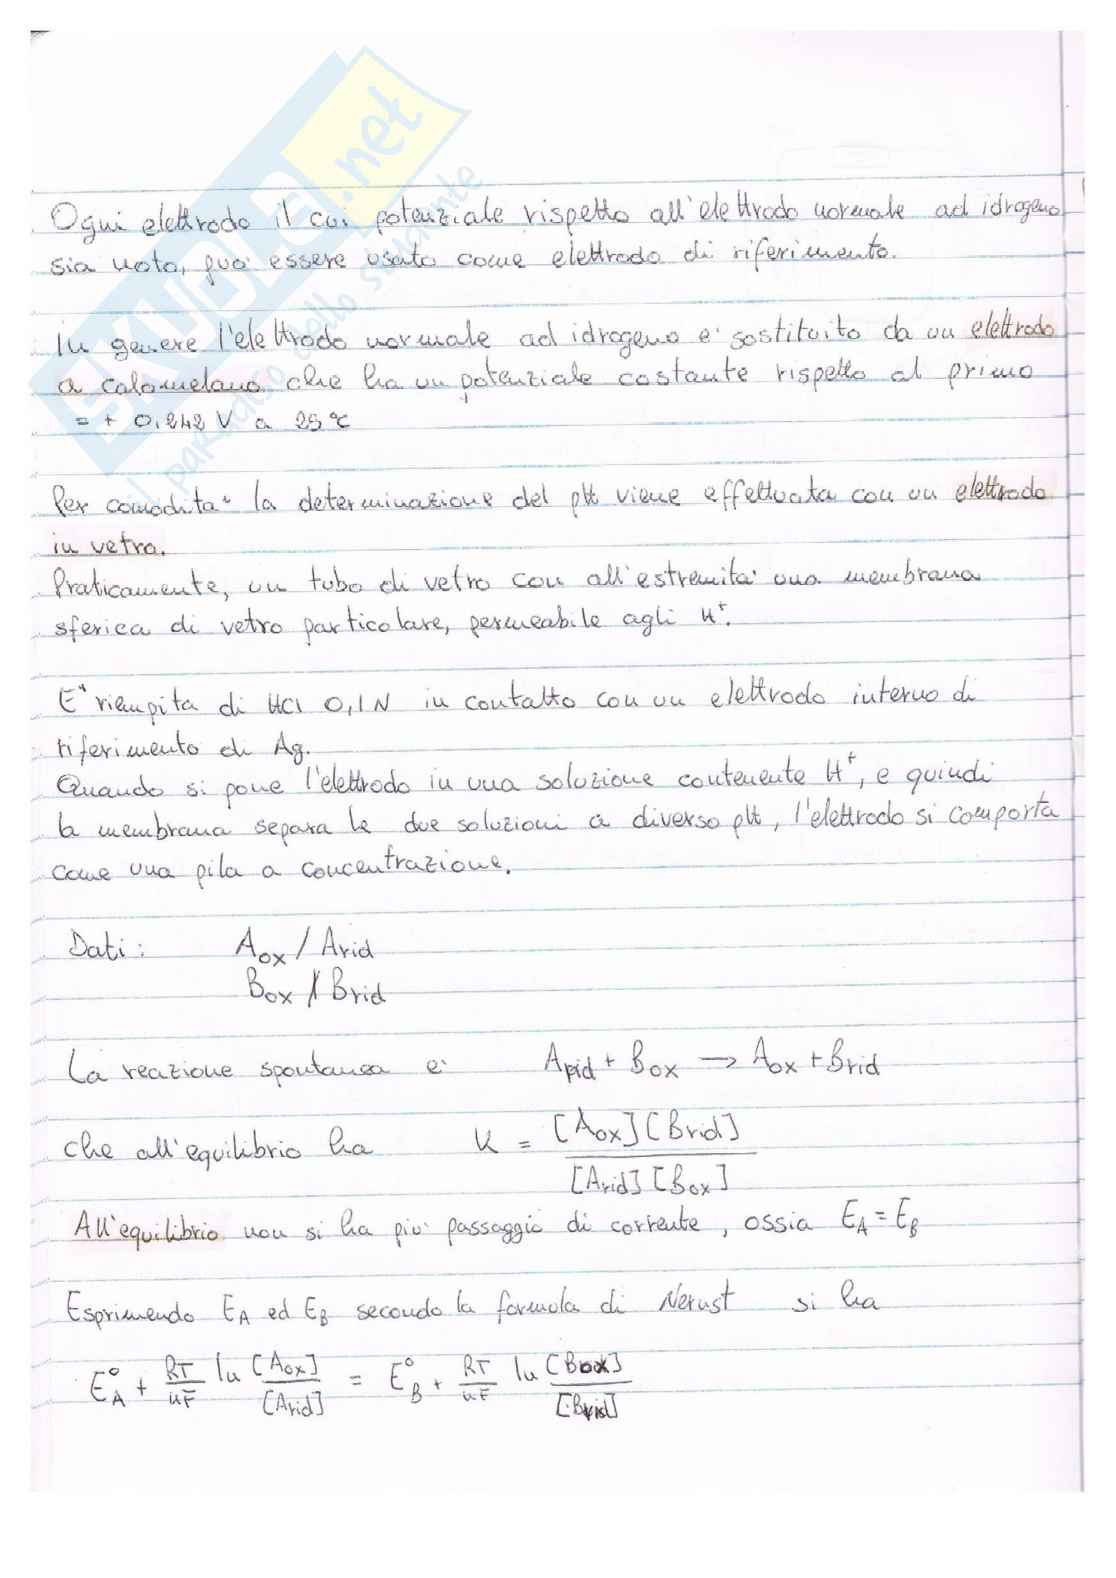 SKUOLA.net
il paradiso dello studente
Ogni elettrodo il cui potenziale rispetto all'elettrodo normale ad idrogeno
sia noto, può essere usato come elettrodo di riferimento.
In genere l'elettrodo normale ad idrogeno e' sostituito da un elettrodo
a calomelano che ha un potenziale costante rispetto al primo
= + 0.242 V a 25 °C
Per comodita' la determinazione del pH viene effettuata con un elettrodo
in vetro.
Praticamente, un tubo di vetro con all'estremita' una membrana
sferica di vetro particolare, permeabile agli H⁺.
E' riempita di HCl 0,1 N in contatto con un elettrodo interno di
riferimento di Ag.
Quando si pone l'elettrodo in una soluzione contenente H⁺, e quindi
la membrana separa le due soluzioni a diverso pH, l'elettrodo si comporta
come una pila a concentrazione.
Dati: Aox / Arid
Box / Brid
La reazione spontanea e' Arid + Box → Aox + Brid
che all'equilibrio ha K = [Aox][Brid] / [Arid][Box]
All'equilibrio non si ha piu' passaggio di corrente, ossia E_A = E_B
Esprimendo E_A ed E_B secondo la formula di Nernst si ha
E°_A + RT/nF ln [Aox]/[Arid] = E°_B + RT/nF ln [Box]/[Brid]